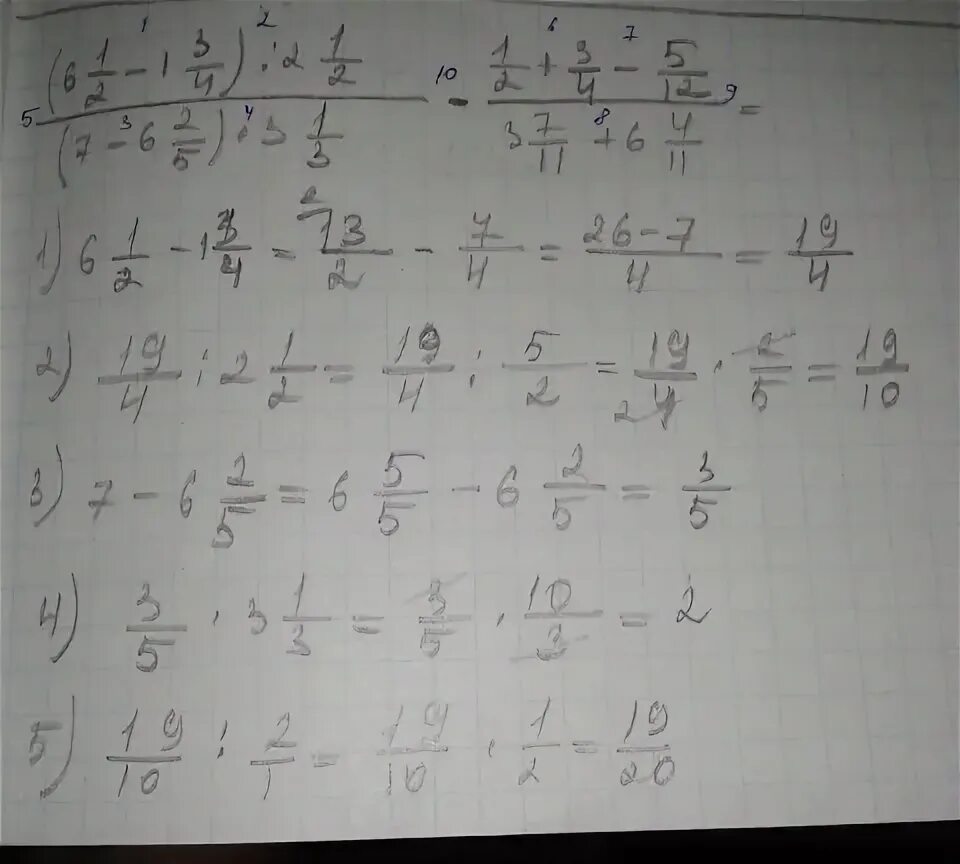 (6 1/2 - 1 3/4) : 2 1/2 / (7 - 6 2/5) · 3 1/3 - 1/2 + 3/4 - 5/12 / 3 7/11 + 6 4/11 =
1 2 3 4 5 6 7 8 9 10
1) 6 1/2 - 1 3/4 = 2 13/2 - 7/4 = 26-7/4 = 19/4
2) 19/4 : 2 1/2 = 19/4 : 5/2 = 19/2 4 · 2/5 = 19/10
3) 7 - 6 2/5 = 6 5/5 - 6 2/5 = 3/5
4) 3/5 · 3 1/3 = 3/5 · 10/3 = 2
5) 19/10 : 2/1 = 19/10 · 1/2 = 19/20